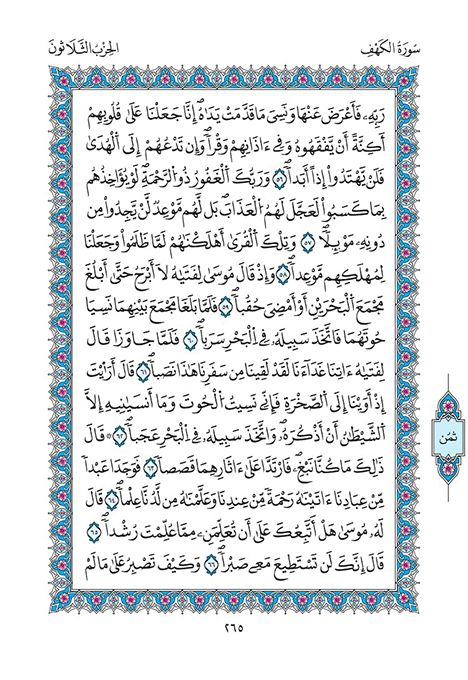 سُورَةُ الكَهْفِ الحِزْبُ الثَّلَاثُونَ
رَبِّهِۦ فَأَعْرَضَ عَنْهَا وَنَسِىَ مَا قَدَّمَتْ يَدَاهُ إِنَّا جَعَلْنَا عَلَىٰ قُلُوبِهِمُۥ
أَكِنَّةً أَنْ يَّفْقَهُوهُ وَفِےٓ ءَاذَانِهِمْ وَقْراً وَإِن تَدْعُهُمُۥٓ إِلَى اَ۬لْهُدَىٰ
فَلَنْ يَّهْتَدُوٓاْ إِذاً أَبَداً ٥٦ وَرَبُّكَ اَ۬لْغَفُورُ ذُو اُ۬لرَّحْمَةِ لَوْ يُؤَاخِذُهُم
بِمَا كَسَبُواْ لَعَجَّلَ لَهُمُ اُ۬لْعَذَابَ بَل لَّهُم مَّوْعِدٌ لَّنْ يَّجِدُواْ مِن
دُونِهِۦ مَوْئِلاً ٥٧ وَتِلْكَ اَ۬لْقُرَىٰٓ أَهْلَكْنَٰهُمْ لَمَّا ظَلَمُواْ وَجَعَلْنَا
لِمُهْلَكِهِم مَّوْعِداً ٥٨ وَإِذْ قَالَ مُوسَىٰ لِفَتَىٰهُ لَآ أَبْرَحُ حَتَّىٰٓ أَبْلُغَ
مَجْمَعَ اَ۬لْبَحْرَيْنِ أَوْ أَمْضِىَ حُقُباً ٥٩ فَلَمَّا بَلَغَا مَجْمَعَ بَيْنِهِمَا نَسِيَا
حُوتَهُمَا فَاتَّخَذَ سَبِيلَهُۥ فِے اِ۬لْبَحْرِ سَرَباً ٦٠ فَلَمَّا جَاوَزَا قَالَ
لِفَتَىٰهُ ءَاتِنَا غَدَآءَنَا لَقَدْ لَقِينَا مِن سَفَرِنَا هَٰذَا نَصَباً ٦١ قَالَ أَرَٰٓيْتَ
إِذَ اَوَيْنَآ إِلَى اَ۬لصَّخْرَةِ فَإِنِّے نَسِيتُ اُ۬لْحُوتَ وَمَآ أَنسَىٰنِيهِ إِلَّا
اَ۬لشَّيْطَٰنُ أَنْ أَذْكُرَهُۥ وَاتَّخَذَ سَبِيلَهُۥ فِے اِ۬لْبَحْرِ عَجَباً ٦٢ قَالَ
ذَٰلِكَ مَا كُنَّا نَبْغِ فَارْتَدَّا عَلَىٰٓ ءَاثَارِهِمَا قَصَصاً ٦٣ فَوَجَدَا عَبْداً
مِّنْ عِبَادِنَآ ءَاتَيْنَٰهُ رَحْمَةً مِّنْ عِندِنَا وَعَلَّمْنَٰهُ مِن لَّدُنَّا عِلْماً ٦٤ قَالَ
لَهُۥ مُوسَىٰ هَلْ أَتَّبِعُكَ عَلَىٰٓ أَن تُعَلِّمَنِۦ مِمَّا عُلِّمْتَ رُشْداً ٦٥
قَالَ إِنَّكَ لَن تَسْتَطِيعَ مَعِے صَبْراً ٦٦ وَكَيْفَ تَصْبِرُ عَلَىٰ مَا لَمْ
ثمُن
٢٦٥